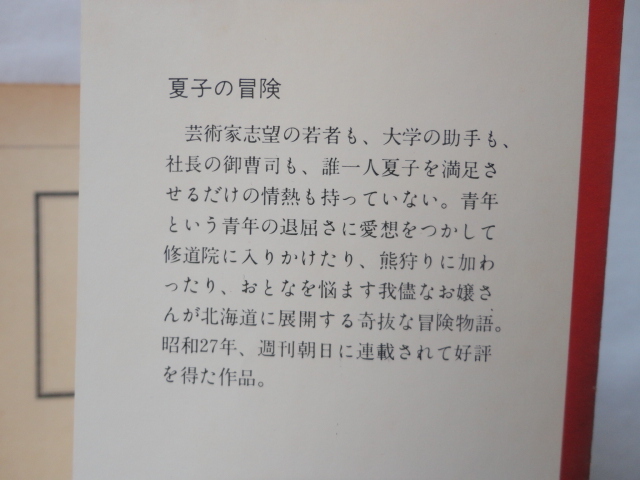 夏子の冒険
芸術家志望の若者も、大学の助手も、
社長の御曹司も、誰一人夏子を満足さ
せるだけの情熱も持っていない。青年
という青年の退屈さに愛想をつかして
修道院に入りかけたり、熊狩りに加わ
ったり、おとなを悩ます我儘なお嬢さ
んが北海道に展開する奇抜な冒険物語。
昭和27年、週刊朝日に連載されて好評
を得た作品。